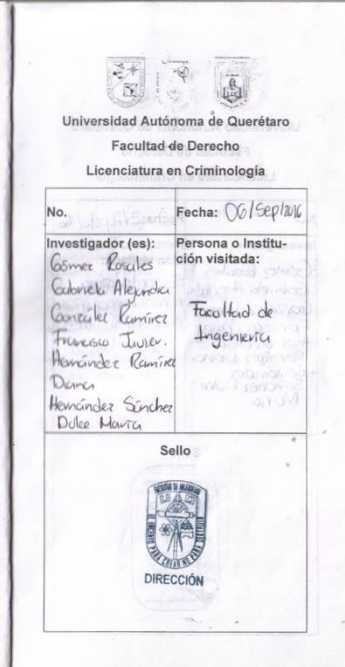 Universidad Autónoma de Querétaro
Facultad de Derecho
Licenciatura en Criminología
No.
Fecha: 06/Sep/2016
Investigador (es):
Gómez Rosales
Gabriela Alejandra
González Ramírez
Francisco Javier.
Hernández Ramírez
Diana
Hernández Sánchez
Dulce María
Persona o Institu-
ción visitada:
Facultad de
Ingeniería
Sello
EL INGENIO PARA CREAR NO PARA DESTRUIR
DIRECCIÓN